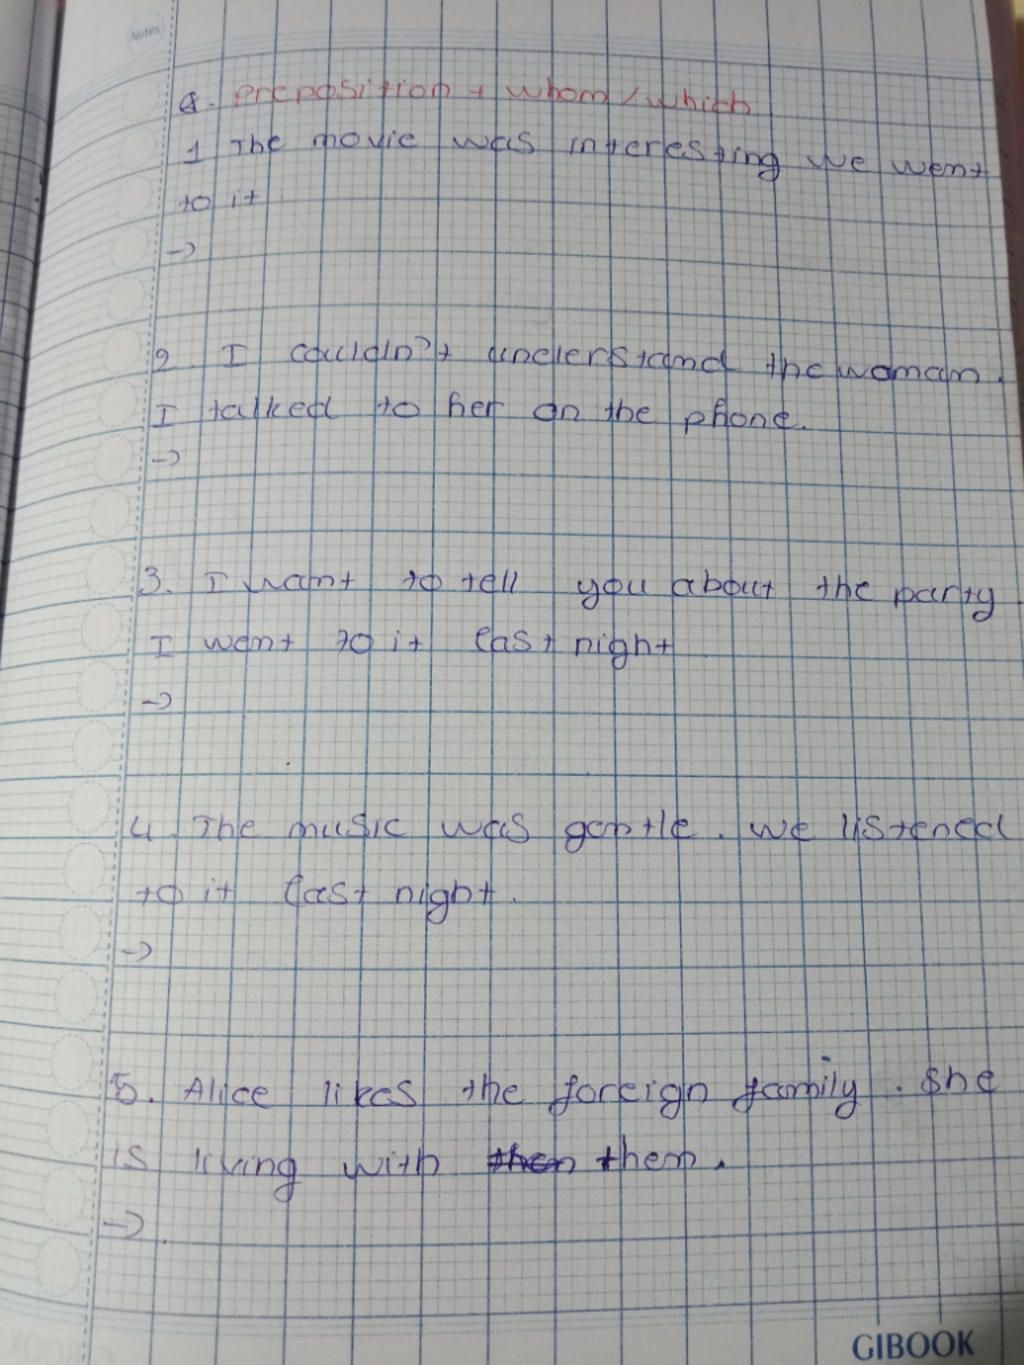 Notes
a. preposition + whom/which
1 The movie was interesting we went
to it.
->
2. I couldn't understand the woman.
I talked to her on the phone.
->
3. I want to tell you about the party
I went to it last night
->
4. The music was gentle. We listened
to it last night.
->
5. Alice likes the foreign family. She
is living with then them.
->
GIBOOK